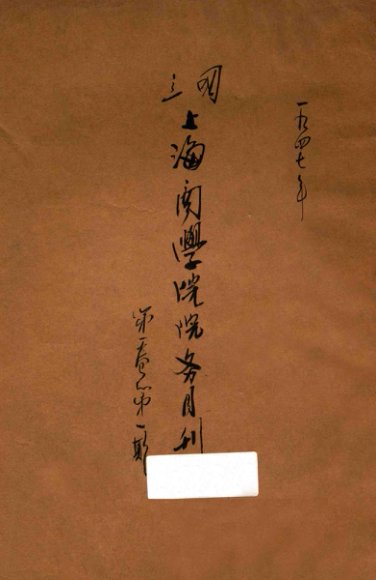 一九四七年
国立
上海商學院院务月刊
第一卷第一期